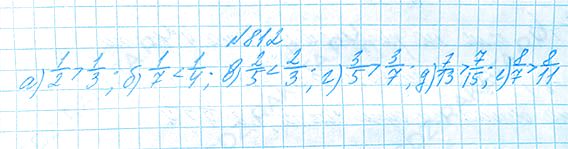 №812
а) 1/2 > 1/3; б) 1/7 < 1/4; в) 2/5 < 2/3; г) 3/5 > 3/7; д) 7/13 > 7/15; е) 8/7 > 8/11